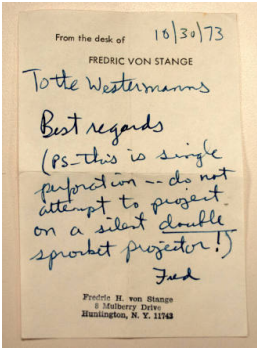 From the desk of
10/30/73
FREDRIC VON STANGE
To the Westermanns
Best regards
(PS-this is single
perforation -- do not
attempt to project
on a silent double
sprocket projector!)
Fred
Fredric H. von Stange
8 Mulberry Drive
Huntington, N. Y. 11743